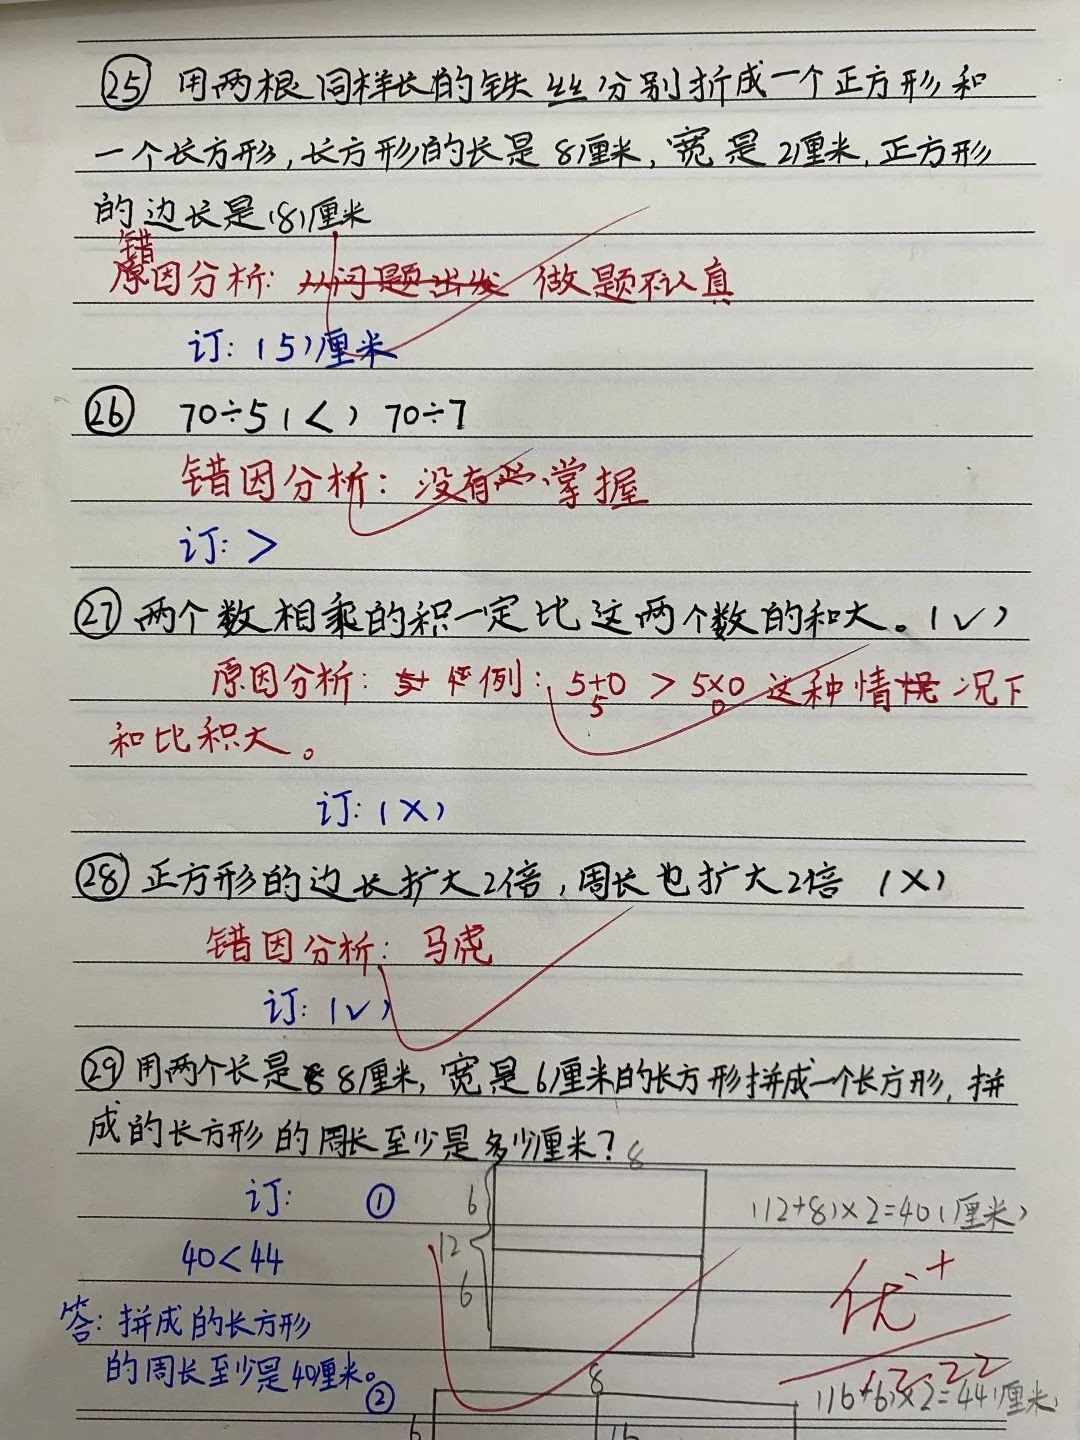 ㉕ 用两根同样长的铁丝分别折成一个正方形和
一个长方形,长方形的长是8厘米,宽是2厘米,正方形
的边长是(8)厘米
错
原因分析: 从问题出发 做题不认真
订:(5)厘米
㉖ 70÷5(<)70÷7
错因分析:没有掌握
订: >
㉗ 两个数相乘的积一定比这两个数的和大。(√)
原因分析: 例: 5+0 > 5×0 这种情况下
5 0
和比积大。
订:(×)
㉘ 正方形的边长扩大2倍,周长也扩大2倍 (×)
错因分析: 马虎
订:(√)
㉙ 用两个长是8厘米,宽是6厘米的长方形拼成一个长方形,拼
成的长方形的周长至少是多少厘米?
8
订: ① 6 (12+8)×2=40(厘米)
12
40<44
6
优+
答: 拼成的长方形
的周长至少是40厘米。
12.22
② 8 (16+6)×2=44(厘米)
6 16